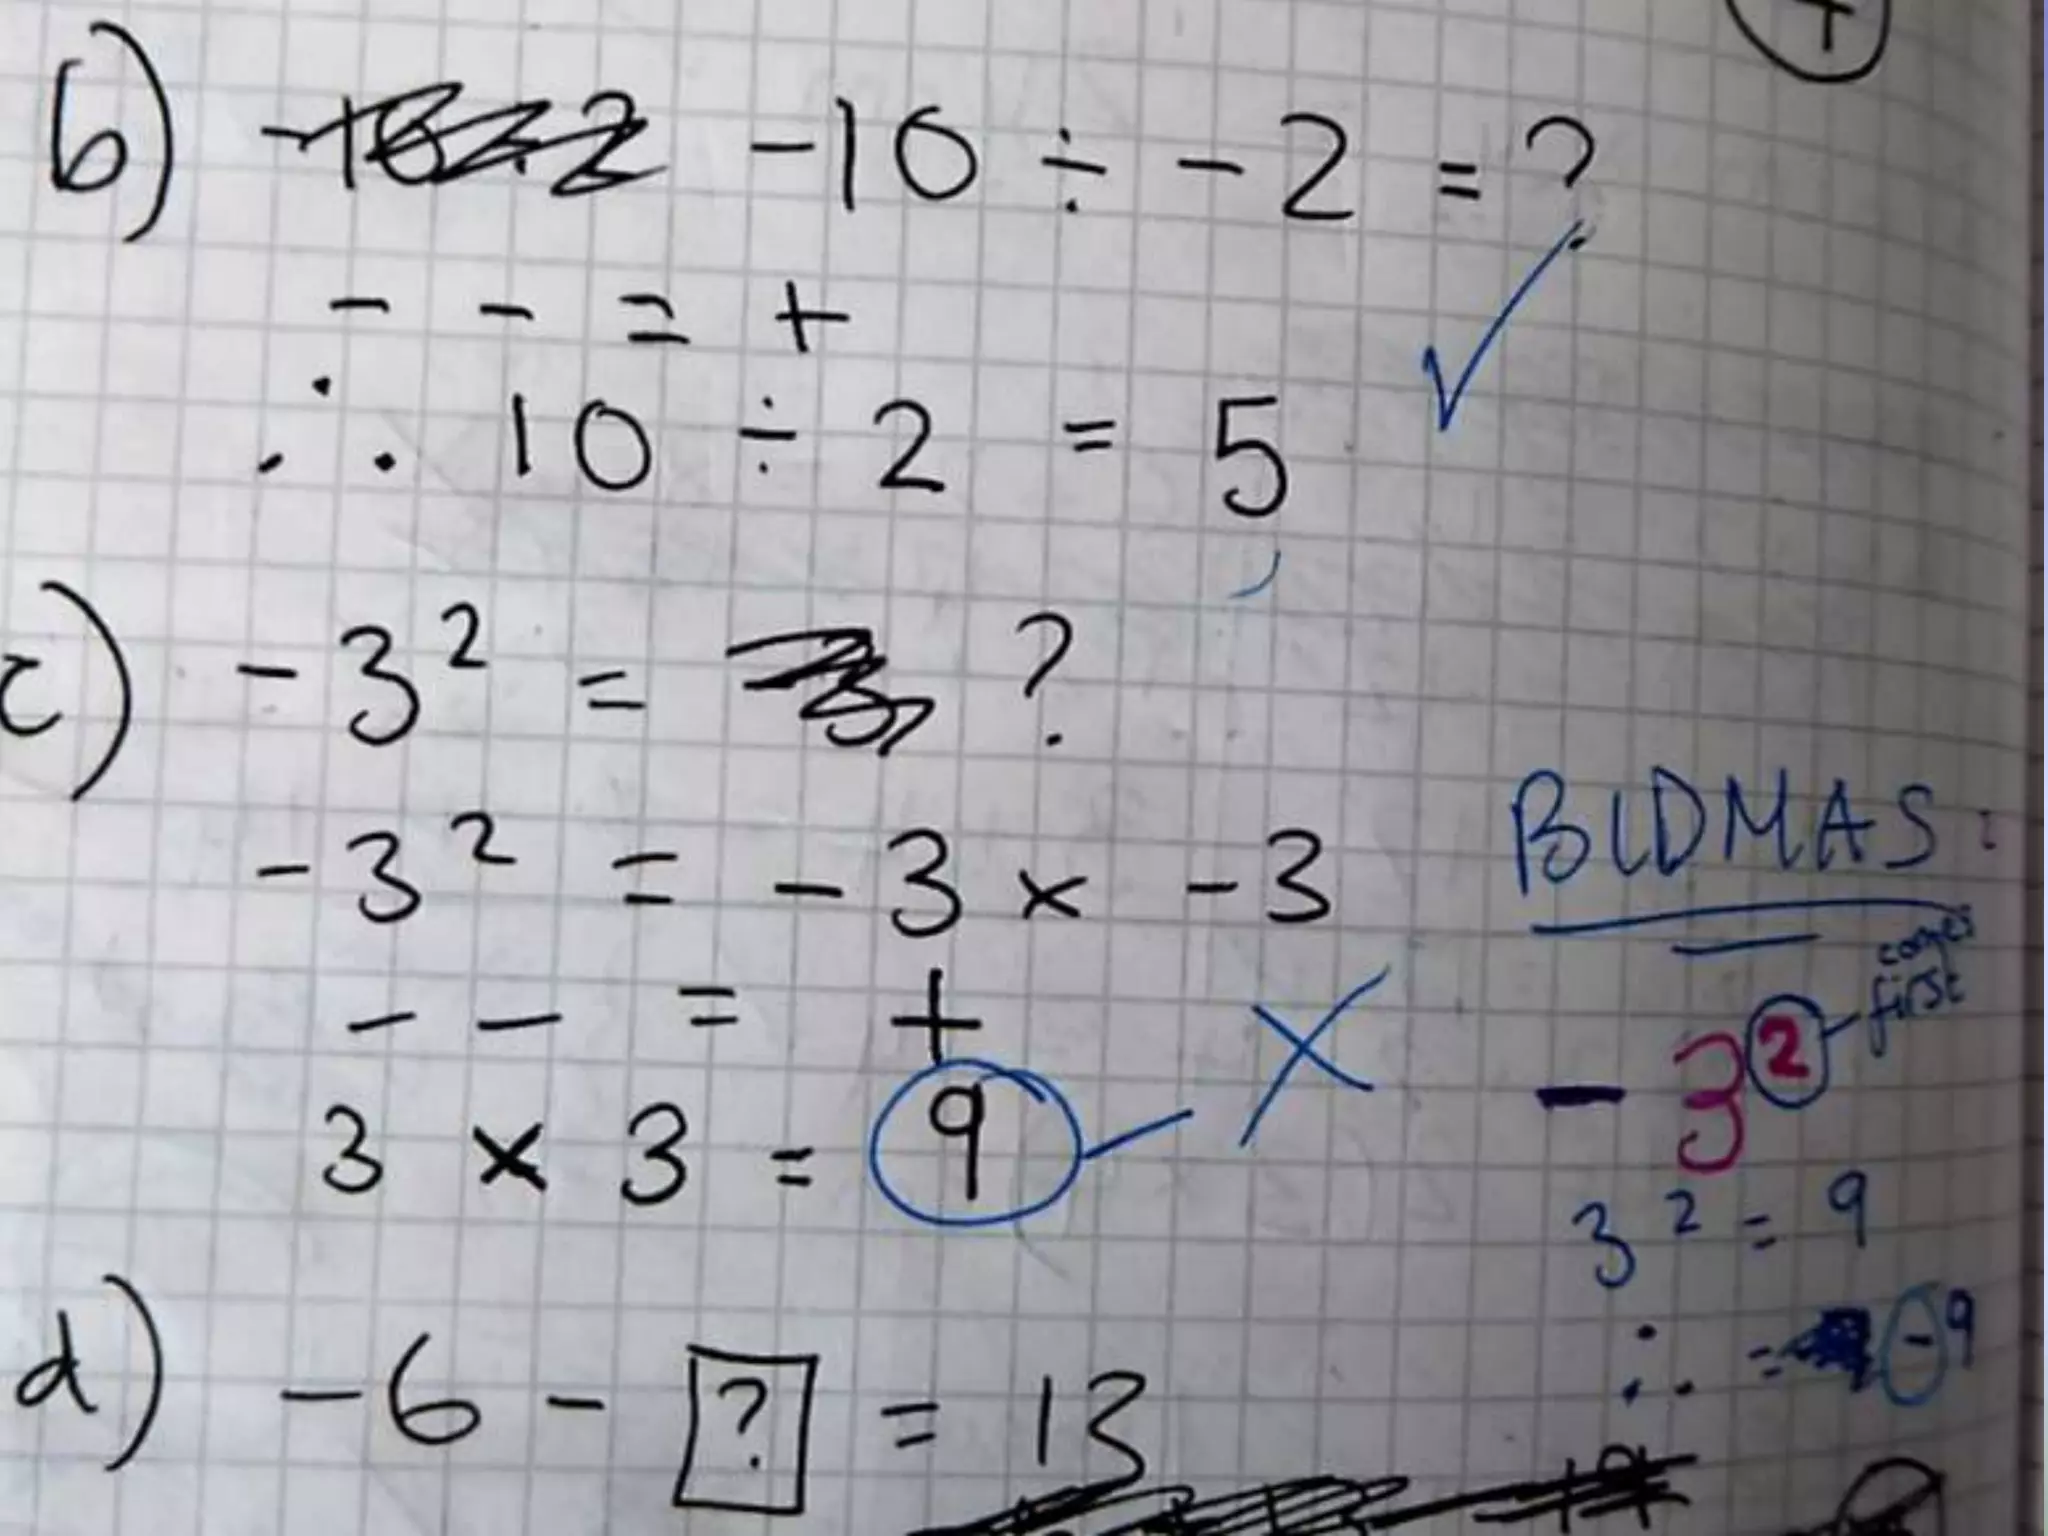 +
b) -10 ÷ -2 = ?
- - = +
∴ 10 ÷ 2 = 5
c) -3² = ?
-3² = -3 × -3
- - = +
3 × 3 = 9
BIDMAS:
comes
first
-3²
3² = 9
∴ = -9
d) -6 - ? = 13